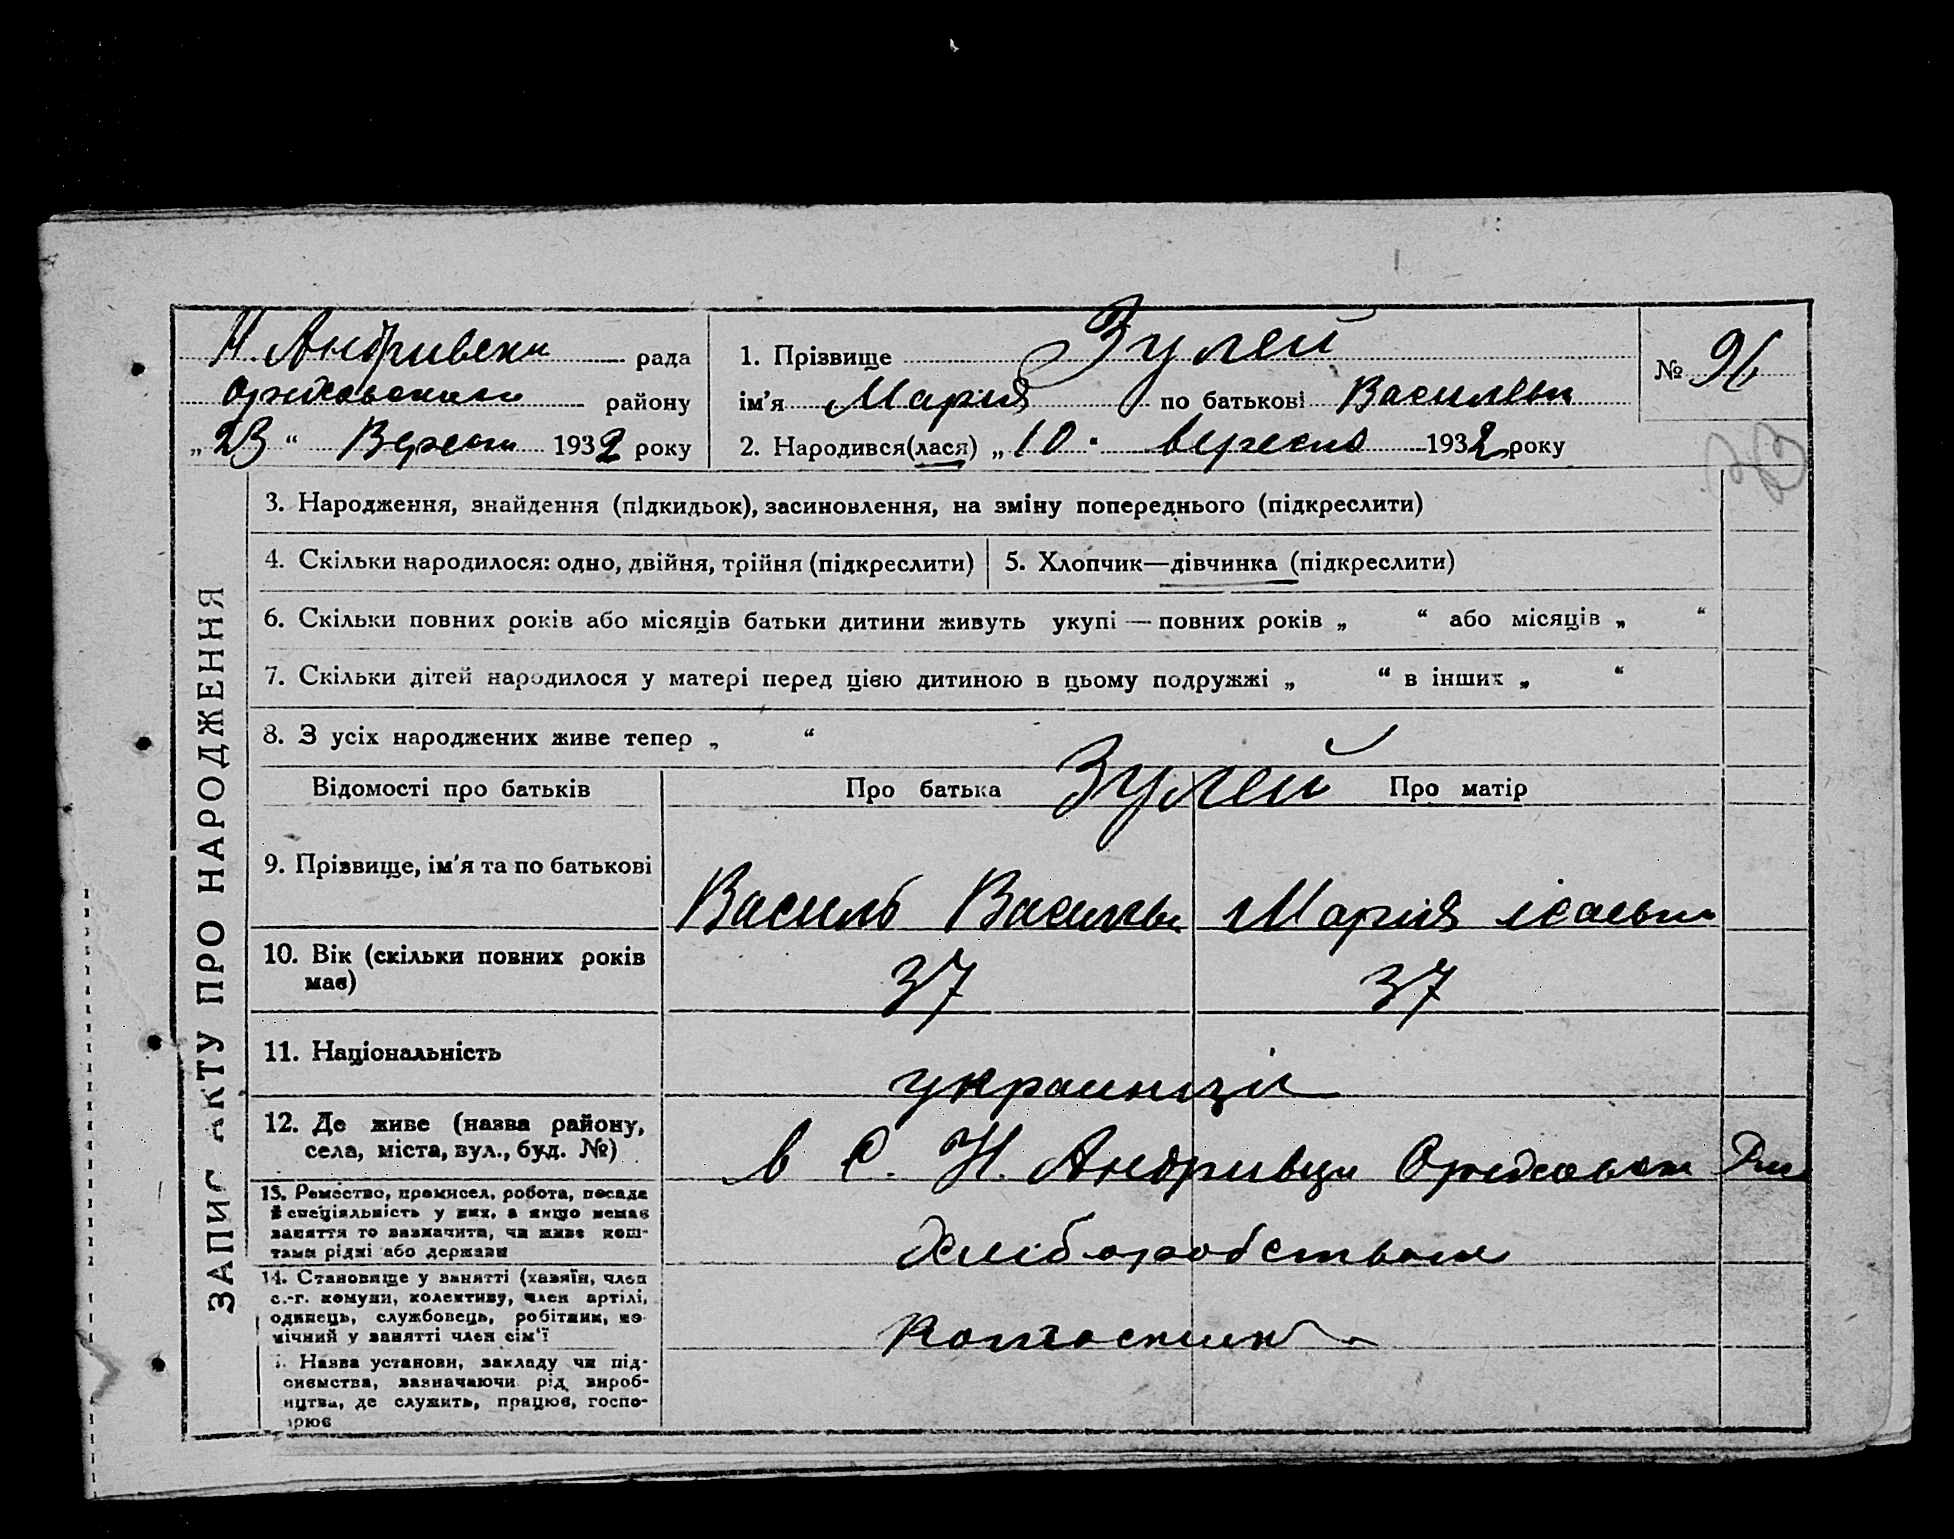 Н. Андривски рада
Оржховського району
„23“ Вересня 1932 року
1. Прізвище Зулей
ім'я Мария по батькові Васильвн
2. Народився(лася) „10. вересня 1932 року
№ 96
33
ЗАПИС АКТУ ПРО НАРОДЖЕННЯ
3. Народження, знайдення (підкидьок), засиновлення, на зміну попереднього (підкреслити)
4. Скільки народилося: одно, двійня, трійня (підкреслити)
5. Хлопчик—дівчинка (підкреслити)
6. Скільки повних років або місяців батьки дитини живуть укупі — повних років „ “ або місяців „ “
7. Скільки дітей народилося у матері перед цією дитиною в цьому подружжі „ “ в інших „ “
8. З усіх народжених живе тепер „ “
Відомості про батьків
Про батька Зулей Про матір
9. Прізвище, ім'я та по батькові
Василь Васильв Мария Ісаевн
10. Вік (скільки повних років
має)
37 37
11. Національність
украинці
12. Де живе (назва району,
села, міста, вул., буд. №)
в С. Н. Андривци
13. Ремество, промисел, робота, посада
й спеціяльність у них, а якщо немає
заняття то зазначити, чи живе кош-
тами рідні або держави
Хліборобством
14. Становище у занятті (хазяїн, член
с.-г. комуни, колективу, член артілі,
одинець, службовець, робітник, по-
мічний у занятті член сім'ї
Колгоспник
Назва установи, закладу чи під-
ємства, зазначаючи рід вироб-
ництва, де служить, працює, госпо-
арює